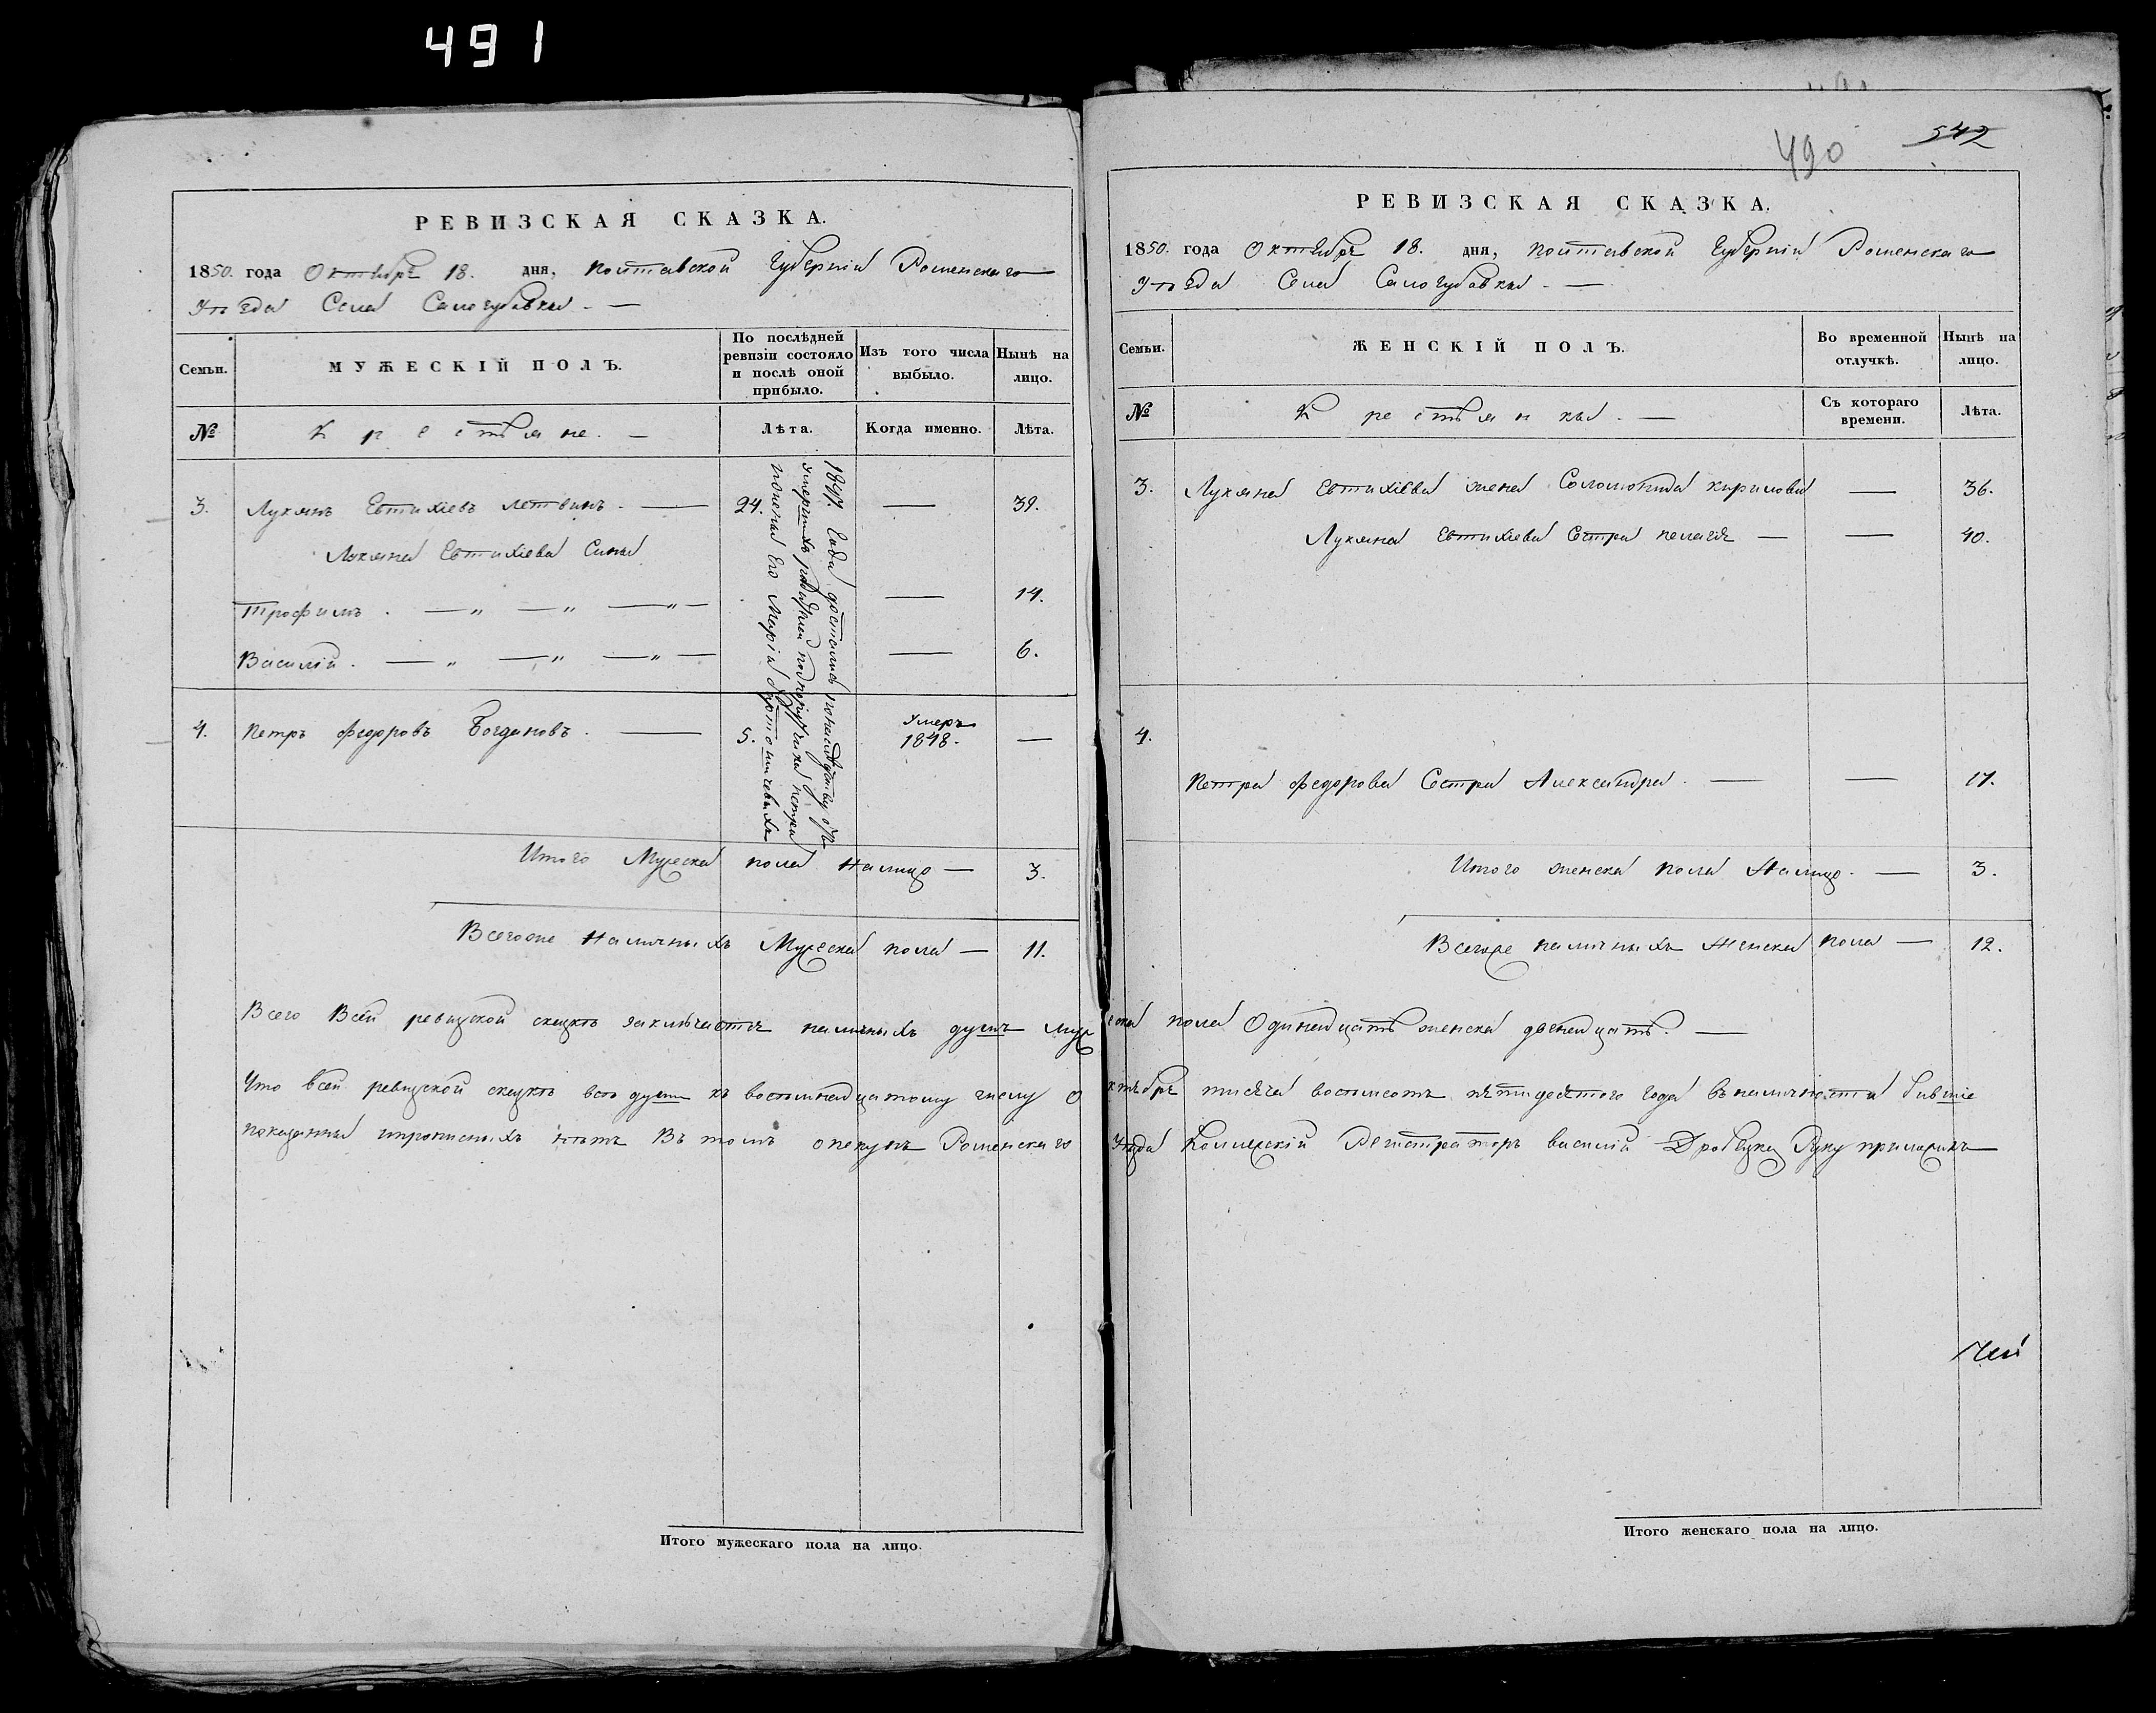 491
РЕВИЗСКАЯ СКАЗКА.
1850. года Октября 18. дня, полтавской Губерніи Роменскаго
Уезда Села Салогубовки. —
Семьи.
МУЖЕСКІЙ ПОЛЪ.
По послѣдней ревизіи состояло и послѣ оной прибыло.
Изъ того числа выбыло.
Нынѣ на лицо.
№
Крестьяне. —
Лѣта.
Когда именно.
Лѣта.
3. Лукянъ Евтихіевъ Летвинъ. — 24. — 39.
Лукяна Евтихіева Сыны
Трофимъ. — „ — „ — „ — — 14.
Василій. — „ — „ — „ — — 6.
1847. Года достались понаследству отъ
умерших родителей подпоручика петра
и жены его Маріи
4. Петръ Федоровъ Богдановъ. — 5. умеръ 1848. —
Итого Мужеска пола Налицо — 3.
Всегоже Наличныхъ Мужеска пола — 11.
Всего Всей ревизской сказкѣ заключается наличныхъ душъ муж
Что всей ревизской сказкѣ всѣ души къ восьмнадцатому числу о
показанны и прописныхъ нѣтъ Въ томъ опекунъ Роменскаго
Итого мужескаго пола на лицо.
490 542
РЕВИЗСКАЯ СКАЗКА.
1850. года Октября 18. дня, полтавской Губерніи Роменскаго
Уезда Села Салогубовки. —
Семьи.
ЖЕНСКІЙ ПОЛЪ.
Во временной отлучкѣ.
Нынѣ на лицо.
№
Крестьянки. —
Съ котораго времени.
Лѣта.
3. Лукяна Евтихіева жена Соломонида кирилова — 36.
Лукяна Евтихіева Сестра пелагія — — 40.
4.
Петра Федорова Сестра Александра. — — 17.
Итого женска пола Налицо. — 3.
Всегоже наличныхъ Женска пола — 12.
еска пола Одинадцать женска двенадцать. —
ктября тисяча восьмсотъ пятидесятого Года въ наличности бывшіе
Уезда Коллежскій Регистраторъ василій Руку приложилъ
Итого женскаго пола на лицо.